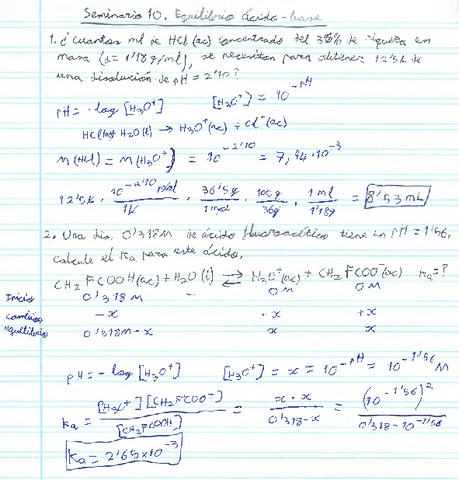 Seminario 10. Equilibrio ácido-base
1. ¿Cuantos ml de HCl(ac) concentrado del 36% de riqueza en
masa (d=1'18g/ml), se necesitan para obtener 12'5L de
una disolución de pH=2'10?
pH=-log[H₃O⁺] [H₃O⁺]=10^-pH
HCl(ac) H₂O(l) → H₃O⁺(ac) + Cl⁻(ac)
M(HCl) = M(H₃O⁺) = 10^-2'10 = 7,94·10⁻³
12'5L · 10^-2'10 mol/1L · 36'5g/1mol · 100g/36g · 1ml/1'18g = 8'53mL
2. Una dis. 0'318M de ácido fluoroacético tiene un pH=1'56,
calcule el Ka para este ácido.
CH₂FCOOH(ac)+H₂O(l) ⇌ H₃O⁺(ac) + CH₂FCOO⁻(ac) Ka=?
Inicio 0'318M 0M 0M
cambio -x +x +x
equilibrio 0'318M-x x x
pH=-log[H₃O⁺] [H₃O⁺]=x=10^-pH=10^-1'56 M
Ka = [H₃O⁺][CH₂FCOO⁻]/[CH₂FCOOH] = x·x/0'318-x = (10^-1'56)²/0'318-10^-1'56
Ka = 2'65×10⁻³